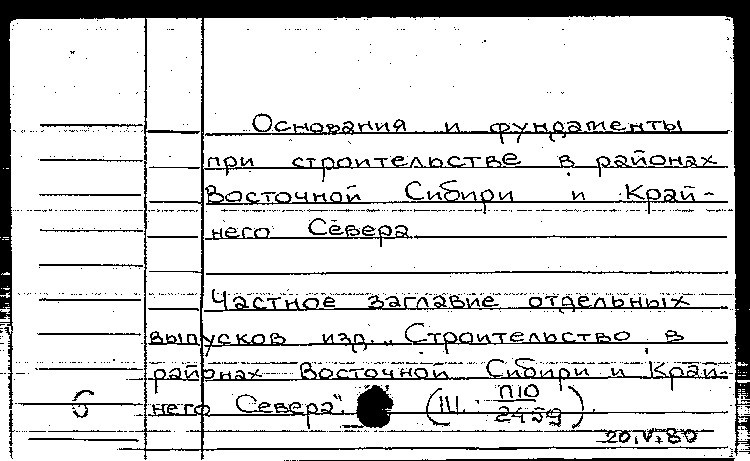 Основания и фундаменты
при строительстве в районах
Восточной Сибири и Край-
него Севера
Частное заглавие отдельных
выпусков изд. „Строительство в
районах Восточной Сибири и Край-
него Севера". (III. П10
2459).
20.V.80